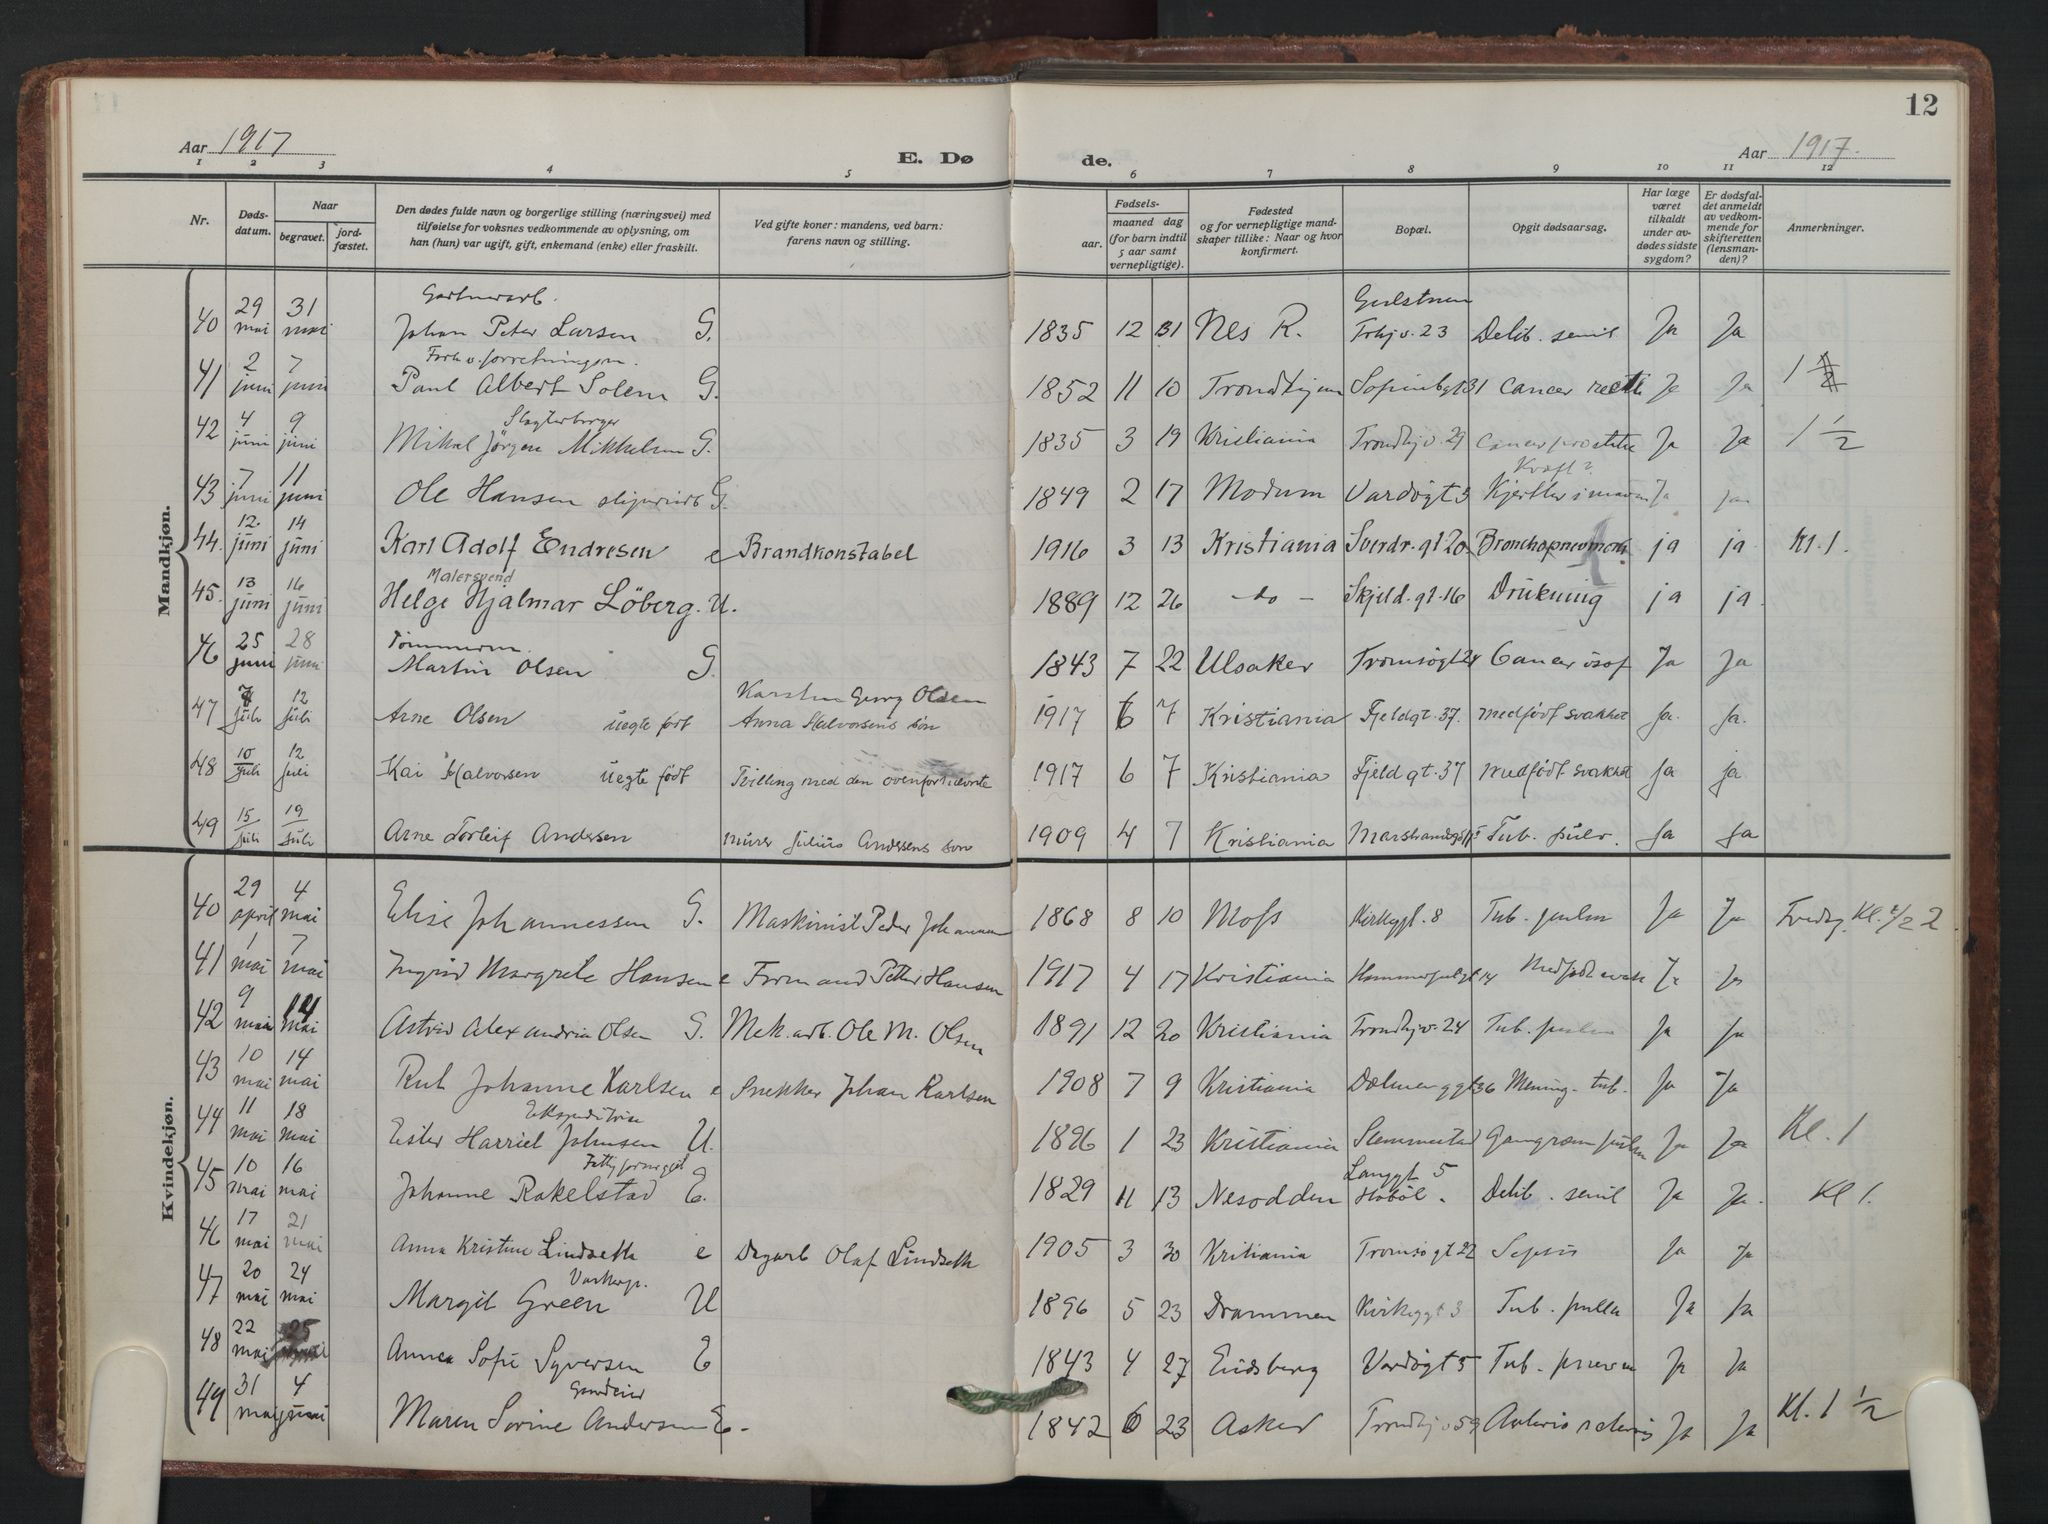 12
Aar 1917 E. Dø de. Aar 1917.
1 2 3 4 5 6 7 8 9 10 11 12
Nr.
Døds-datum.
Naar
begravet.
jord-fæstet.
Den dødes fulde navn og borgerlige stilling (næringsvei) med
tilføielse for voksnes vedkommende av oplysning, om
han (hun) var ugift, gift, enkemand (enke) eller fraskilt.
Ved gifte koner: mandens, ved barn:
farens navn og stilling.
Fødsels-
aar.
maaned dag
(for barn indtil
5 aar samt
vernepligtige).
Fødested
og for vernepligtige mand-
skaper tillike: Naar og hvor
konfirmert.
Bopæl.
Opgit dødsaarsag.
Har læge
været
tilkaldt
under av-
dødes sidste
sygdom?
Er dødsfal-
det anmeldt
av vedkom-
mende for
skifteretten
(lensman-
den)?
Anmerkninger.
Mandkjøn.
40 29 mai 31 mai Gartnerarb. Johan Peter Larsen G. 1835 12 31 Nes R. Trhjv. 23 Debil. senil Ja Ja
41 2 juni 7 juni Forh.v. forretningsm. Paul Albert Solem G. 1852 11 10 Trondhjem Sofienbgt 31 Cancer recti Ja Ja 1
42 4 juni 9 juni Slagterborger Mikal Jörgen Mikkelsen G. 1835 3 19 Kristiania Trondhjv. 29 Cancer prostata Ja Ja 1 1/2
43 7 juni 11 juni Ole Hansen G. 1849 2 17 Modum Vardögt 3 Kræft? Kjertler i maven Ja Ja
44. 12. juni 14 juni Karl Adolf Endresen e Brandkonstabel 1916 3 13 Kristiania Sverdr. gt 20 Bronchopneumoni ja ja Kl. 1.
45. 13 juni 16 juni Malersvend Helge Hjalmar Löberg. U. 1889 12 26 - do - Skjeld. gt. 16 Drukning ja ja.
46 25 juni 28 juni Tømmerm. Martin Olsen G. 1843 7 22 Ulsaker Tromsögt 24 Cancer øsof Ja Ja
47 7 juli 12 juli Arne Olsen uegte født Karsten Georg Olsen Anna Halvorsens sön 1917 6 7 Kristiania Fjeldgt. 37. medfödt svakhet Ja. Ja.
48 10 juli 12 juli Kai Halvorsen uegte født Tvilling med den ovenfor nævnte 1917 6 7 Kristiania Fjeldgt. 37 medfödt svakhet Ja ja
49 15 juli 19 juli Arne Torleif Andersen murer Julius Andersens sön 1909 4 7 Kristiania Tub. pulv. Ja Ja
Kvindekjøn.
40 29 april 4 mai Elise Johannessen G. Maskinist Peder Johannessen 1868 8 10 Moss Kirkegt. 8 Tub. pulm Ja Ja Fredag Kl. 1/2 2
41 1 mai 7 mai Ingrid Margrete Hansen e Formand Petter Hansen 1917 4 17 Kristiania 14 Medfødt svak Ja Ja
42 9 mai 14 mai Astrid Alexandria Olsen G. Mek. arb. Ole M. Olsen 1891 12 20 Kristiania Trondhjv. 24 Tub. pulm Ja Ja
43 10 mai 14 mai Rut Johanne Karlsen e Snekker Johan Karlsen 1908 7 9 Kristiania Dælenenggt 36 Mening. tub. Ja Ja
44 11 mai 18 mai Ekspeditrise Ester Harriet Johnsen U. 1896 1 23 Kristiania Slemmestad Gangræn pulm Ja Ja Kl. 1
45 10 mai 16 mai Johanne Rakelstad E. 1829 11 13 Nesodden Langgt 5 Hobøl. Debil. senil Ja Ja. Kl 1.
46 17 mai 21 mai Anna Kristine Lindseth e Dagarb Olaf Lindseth 1905 3 30 Kritiania Tromsögt 22 Sepsis Ja Ja
47 20 mai 24 mai Vaskerp. Margit Green U 1896 5 23 Drammen Kirkeggt 3 Tub. pulm Ja Ja
48 22 mai 25 Anna Sofie Syversen E 1843 4 27 Eidsberg Vardögt 5 Ja Ja
49 31 mai 4 juni Gaardeier Maren Sorine Andersen E. 1842 6 23 Asker Trondhjv 59 Ja Ja Kl. 1 1/2